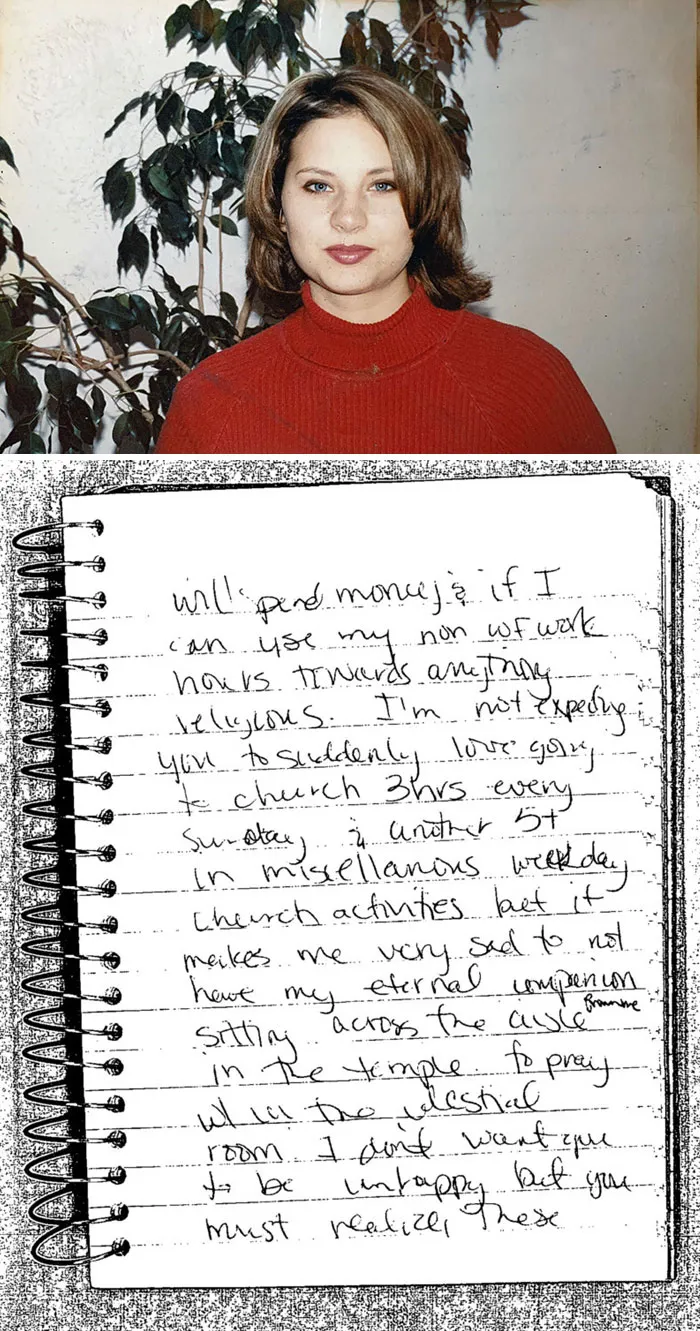 will spend money & if I
can use my non WF work
hours towards anything
religious. I'm not expecting
you to suddenly love going
to church 3hrs every
Sunday & another 5+
in misellanous weekday
church activities but it
makes me very sad to not
have my eternal companion
sitting across the aisle from me
in the temple to pray
w/ in the celestial
room I don't want you
to be unhappy but you
must realize, these